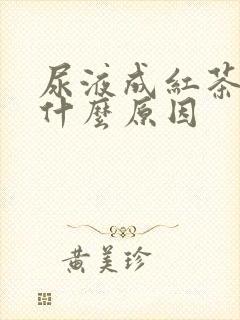 尿液成紅茶
什麼原因
黄美珍